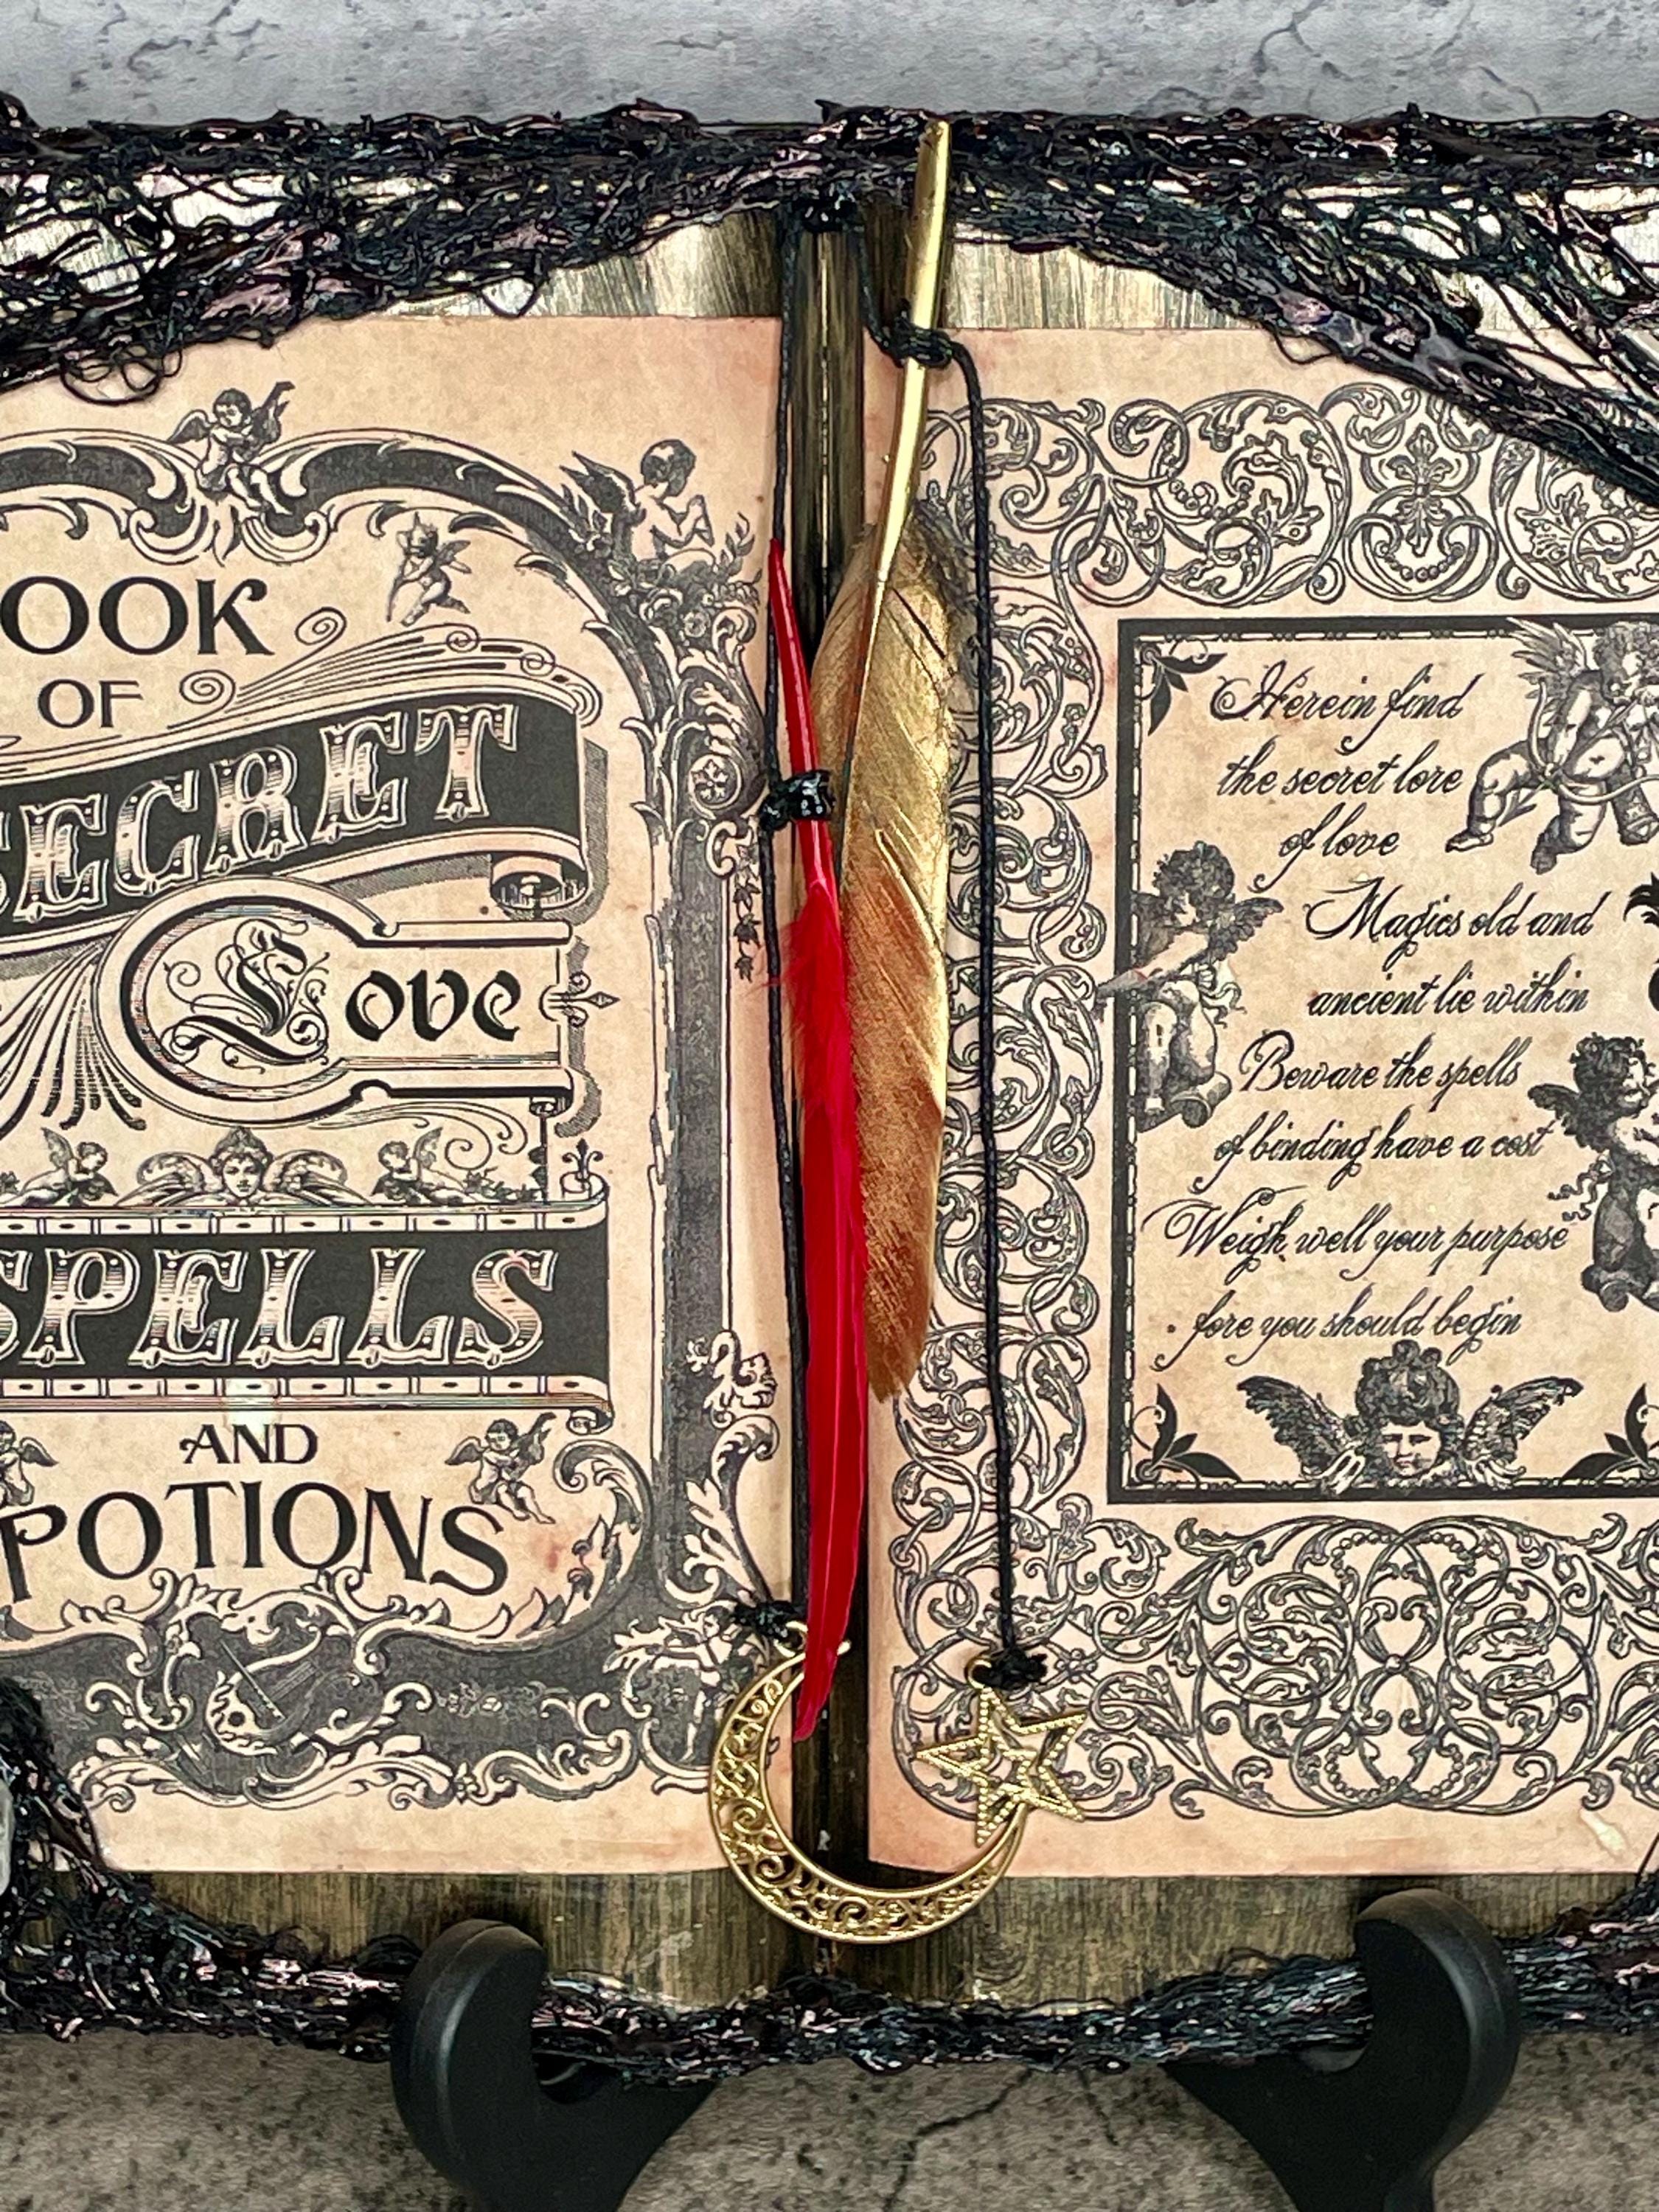 OOK
OF
SECRET
Love
SPELLS
AND
POTIONS
Herein find
the secret lore
of love
Magics old and
ancient lie within
Beware the spells
of binding have a cost
Weigh well your purpose
fore you should begin